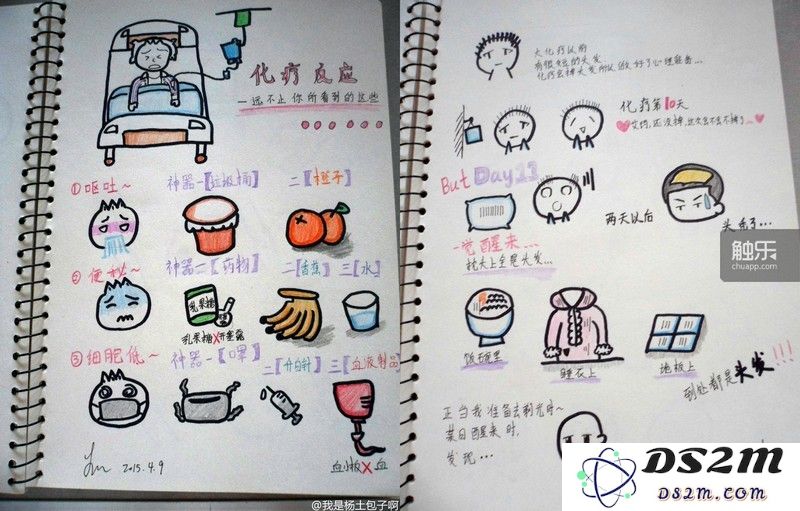 化疗反应
一远不止你所看到的这些
①呕吐~
神器一【垃圾桶】
二【橙子】
②便秘~
神器一【药物】
二【香蕉】
三【水】
乳果糖
乳果糖X开塞露
③细胞低~
神器一【口罩】
二【升白针】
三【血液制品】
血小板X血
2015.4.9
@我是杨土包子啊
大化疗以前
有很短的头发
化疗会掉头发所以做好了心理准备...
化疗第10天
艾玛,还没掉,这次会不会不掉了...
But Day13
一觉醒来...
枕头上全是头发...
两天以后
头秃了...
触乐
chuapp.com
饭碗里
睡衣上
地板上
到处都是头发!!!
正当我准备去剃光时~
某日醒来时,
发现...
DS2m
DS2m.com